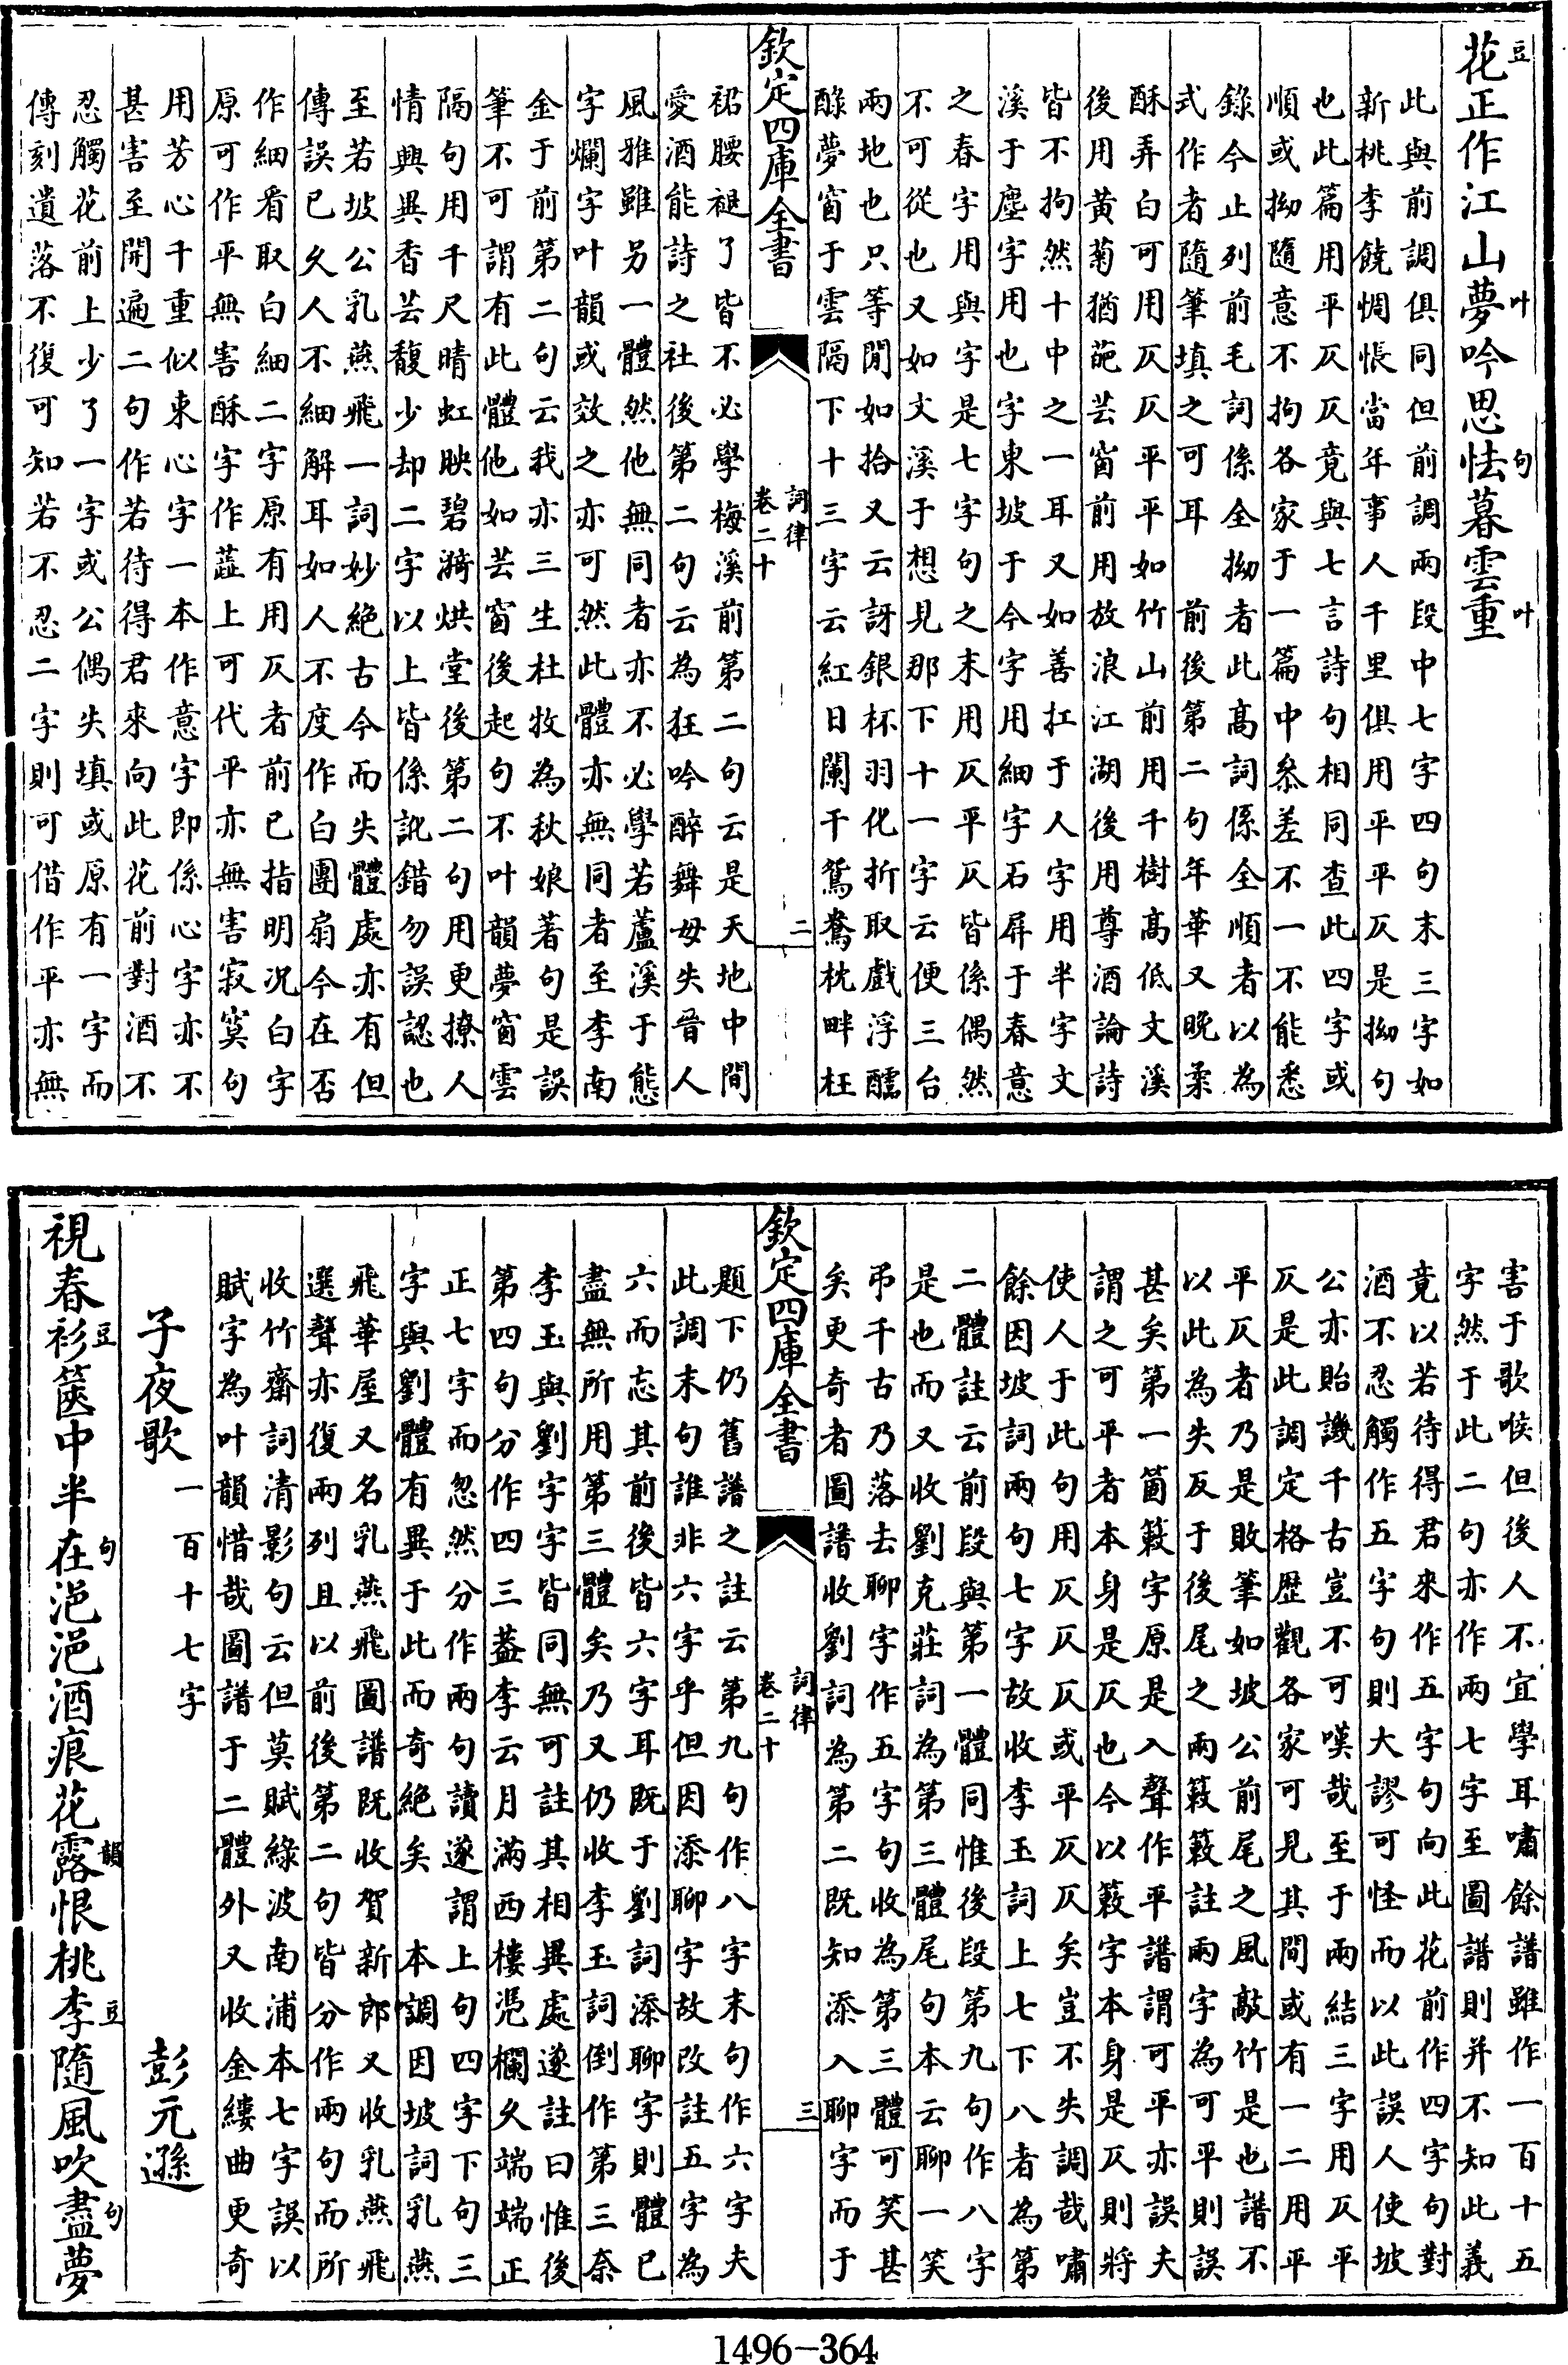 花豆正作江山夢叶吟思怯句暮雲重叶
此與前調俱同但前調兩段中七字四句末三字如
新桃李饒惆悵當年事人千里俱用平平仄是拗句
也此篇用平仄仄竟與七言詩句相同查此四字或
順或拗隨意不拘各家于一篇中叅差不一不能悉
錄今止列前毛詞係全拗者此髙詞係全順者以為
式作者隨筆填之可耳　前後第二句年華又晚柔
酥弄白可用仄仄平平如竹山前用千樹髙低文溪
後用黃菊猶葩芸窗前用放浪江湖後用尊酒論詩
皆不拘然十中之一耳又如善扛于人字用半字文
溪于塵字用也字東坡于今字用細字石屏于春意
之春字用與字是七字句之末用仄平仄皆係偶然
不可從也又如文溪于想見那下十一字云便三台
兩地也只等閒如拾又云訝銀杯羽化折取戲浮醹
醁夢窗于雲隔下十三字云紅日闌干鴛鴦枕畔枉
欽定四庫全書
詞律
卷二十
二
裙腰褪了皆不必學梅溪前第二句云是天地中間
愛酒能詩之社後第二句云為狂吟醉舞毋失晉人
風雅雖另一體然他無同者亦不必學若蘆溪于態
字爛字叶韻或效之亦可然此體亦無同者至李南
金于前第二句云我亦三生杜牧為秋娘著句是誤
筆不可謂有此體他如芸窗後起句不叶韻夢窗雲
隔句用千尺晴虹映碧漪烘堂後第二句用更撩人
情興異香芸馥少却二字以上皆係訛錯勿誤認也
至若坡公乳燕飛一詞妙絶古今而失體處亦有但
傳誤已久人不細解耳如人不度作白團扇今在否
作細看取白細二字原有用仄者前已指明况白字
原可作平無害酥字作蘸上可代平亦無害寂寞句
用芳心千重似束心字一本作意字即係心字亦不
甚害至開遍二句作若待得君來向此花前對酒不
忍觸花前上少了一字或公偶失填或原有一字而
傳刻遺落不復可知若不忍二字則可借作平亦無
害于歌喉但後人不宜學耳嘯餘譜雖作一百十五
字然于此二句亦作兩七字至圖譜則并不知此義
竟以若待得君來作五字句向此花前作四字句對
酒不忍觸作五字句則大謬可怪而以此誤人使坡
公亦貽譏千古豈不可嘆哉至于兩結三字用仄平
仄是此調定格歷觀各家可見其間或有一二用平
平仄者乃是敗筆如坡公前尾之風敲竹是也譜不
以此為失反于後尾之兩簌簌註兩字為可平則誤
甚矣第一箇簌字原是入聲作平譜謂可平亦誤夫
謂之可平者本身是仄也今以簌字本身是仄則將
使人于此句用仄仄仄或平仄仄矣豈不失調哉嘯
餘因坡詞兩句七字故收李玉詞上七下八者為第
二體註云前段與第一體同惟後段第九句作八字
是也而又收劉克莊詞為第三體尾句本云聊一笑
弔千古乃落去聊字作五字句收為第三體可笑甚
矣更奇者圖譜收劉詞為第二既知添入聊字而于
欽定四庫全書
詞律
卷二十
三
題下仍舊譜之註云第九句作八字末句作六字夫
此調末句誰非六字乎但因添聊字故改註五字為
六而忘其前後皆六字耳既于劉詞添聊字則體已
盡無所用第三體矣乃又仍收李玉詞倒作第三奈
李玉與劉字字皆同無可註其相異處遂註曰惟後
第四句分作四三葢李云月滿西樓凭欄久端端正
正七字而忽然分作兩句讀遂謂上句四字下句三
字與劉體有異于此而奇絶矣　本調因坡詞乳燕
飛華屋又名乳燕飛圖譜既收賀新郎又收乳燕飛
選聲亦復兩列且以前後第二句皆分作兩句而所
收竹齋詞清影句云但莫賦綠波南浦本七字誤以
賦字為叶韻惜哉圖譜于二體外又收金縷曲更奇
子夜歌　一百十七字　彭元遜
視春衫豆篋中半在句浥浥酒痕花露韻恨桃李豆隨風吹盡句夢
1496-364